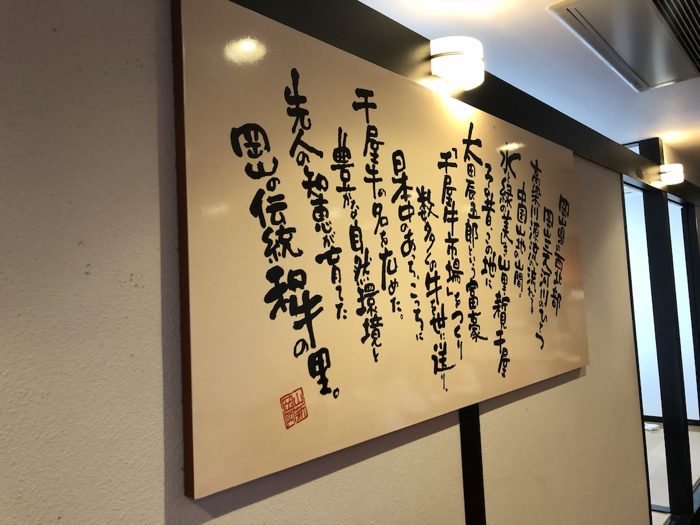 岡山県の西北部
岡山三大河川のひとつ
高梁川源流域に
中国山地の山間
水と緑の美しき山里新見千屋
その昔この地に
太田辰五郎という富豪
「千屋牛市場」をつくり
数多くの牛を世に送り、
日本中のあっちこっちに
千屋牛の名を広めた。
豊かな自然環境と
先人の知恵が育てた
岡山の伝統和牛の里。